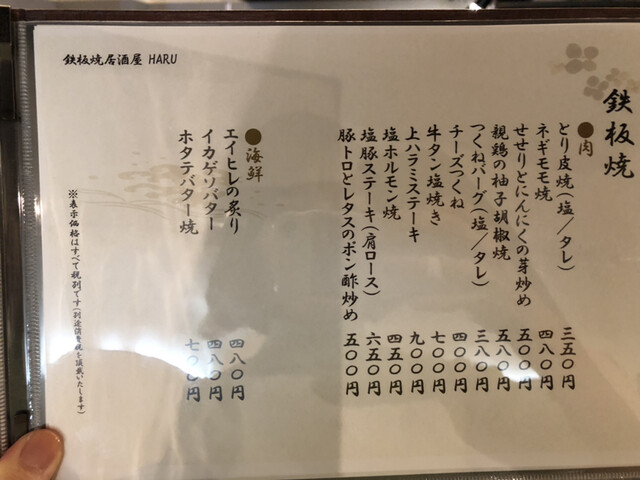 鉄板焼
●肉
とり皮焼(塩/タレ) 三五〇円
ネギモモ焼 四八〇円
せせりとにんにくの芽炒め 五〇〇円
親鶏の柚子胡椒焼 五八〇円
つくねバーグ(塩/タレ) 三八〇円
チーズつくね 四〇〇円
牛タン塩焼き 七〇〇円
上ハラミステーキ 九〇〇円
塩ホルモン焼 四五〇円
塩豚ステーキ(肩ロース) 六五〇円
豚トロとレタスのポン酢炒め 五〇〇円
●海鮮
エイヒレの炙り 四八〇円
イカゲソバター 四八〇円
ホタテバター焼 七〇〇円
※表示価格はすべて税別です(別途消費税を頂戴いたします)
鉄板焼居酒屋 HARU